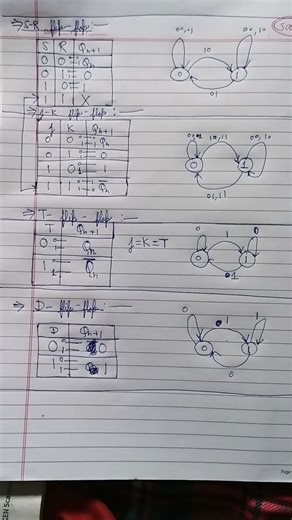 ⇒ S-R flip-flop :—
S R Qn+1
0 0 Qn
0 1 0
1 0 1
1 1 X
00,01 10 00,10
0 1
01
⇒ J-K flip-flop :—
J K Qn+1
0 0 Qn
0 1 0
1 0 1
1 1 Q̅n
10,11 00,10
0 1
01,11
⇒ T- flip-flop :—
T Qn+1
0 Qn
1 Q̅n
J=K=T
0 1 0
0 1
1
⇒ D- flip-flop :—
D Qn+1
0 0
1 1
0 1 1
0 1
0
Page